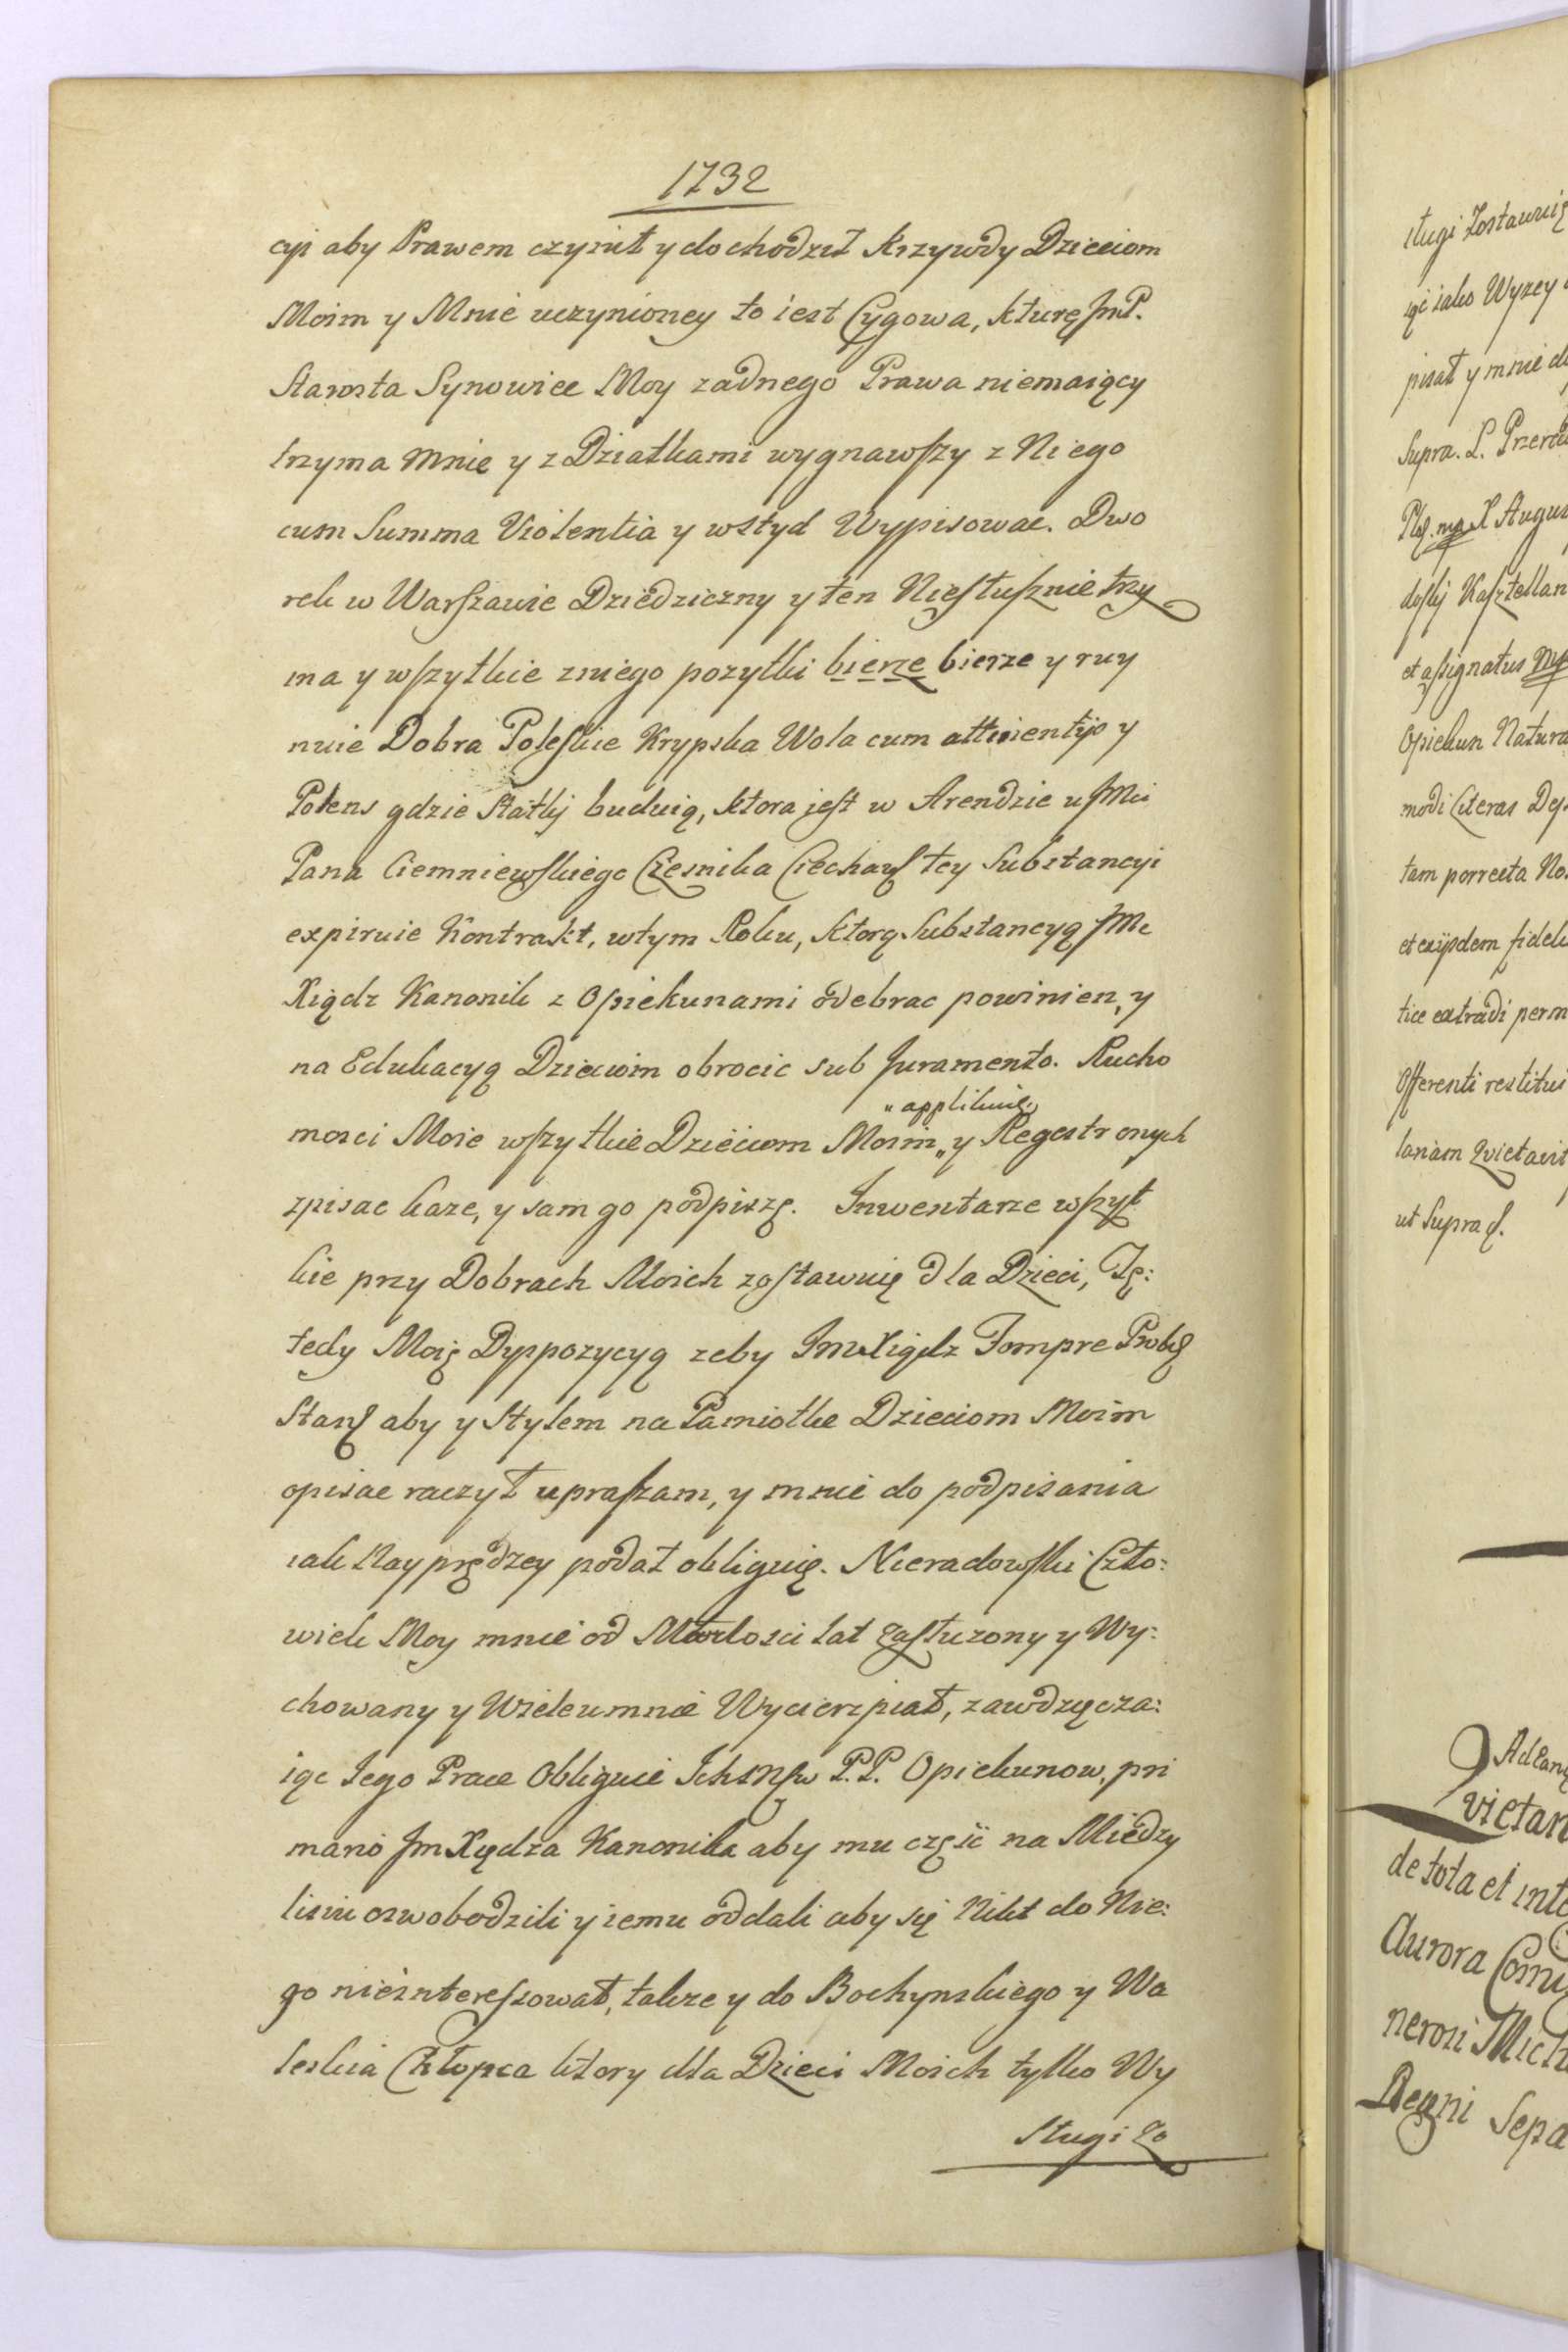 1732
cyi aby Prawem czynił y dochodził Krzywdy Dzieciom
Moim y Mnie uczynioney to iest Cygowa, kturę JmP.
Starosta Synowiec Moy zadnego Prawa niemaiący
trzyma Mnie y z Dziatkami wygnawszy z Niego
cum Summa Violentia y wstyd Wypisowac. Dwo
rek w Warszawie Dziedziczny y ten Niesłusznie trzy
ma y wszytkie zniego pozytki bierze bierze y ruy
nuie Dobra Poleskie Krypska Wola cum attinentijs y
Potens gdzie Statky buduią, ktora jest w Arendzie u JMci
Pana Ciemniewskiego Czesnika Ciechan tey Substancyi
expiruie Kontrakt, wtym Roku, ktorą Substancyą JMc
Xiądz Kanonik z Opiekunami odebrac powinien, y
na Edukacyą Dzieciom obrocic sub Juramento. Rucho
„ applikuię
mosci Moie wszytkie Dzieciom Moim „ y Regestr onych
zpisac kaze, y sam go podpiszę. Inwentarze wszyt
kie przy Dobrach Moich zostawuię dla Dzieci, Tę:
tedy Moię Dyspozycyą zeby Jmc Xiądz Fompre Prob
Stan aby y Stylem na Pamiotke Dzieciom Moim
opisac raczył upraszam, y mnie do podpisania
iak Nayprędzey podał obliguię. Nieradowski Czło:
wiek Moy mnie od Młodosci lat Zasłuzony y Wy:
chowany y Wiele umnie Wycierzpiał, zawdzięcza:
iąc Jego Prace Obliguie Ich P.P. Opiekunow, pri
mario Jm Xiędza Kanonika aby mu część na Miedzy
lisiu oswobodzili y iemu oddali aby się Nikt do Nie:
go nieinteressował, takze y do Bochynskiego y Wa
leska Chłopca ktory dla Dzieci Moich tylko Wy
sługi Zo
sługi Zostawuię
iąc iako Wyzey
pisał y mnie
Supra. L.
X Augus
Kasztellan
et assignatus
Opiekun Natura
modi Literas
tam porrecta
et eiusdem
tice extradi perm
Offerenti restitui
lariam Quietavit
ut Supra
vietan
de tota et inte
Aurora Comi
nerosi Mich
Regni Sepa